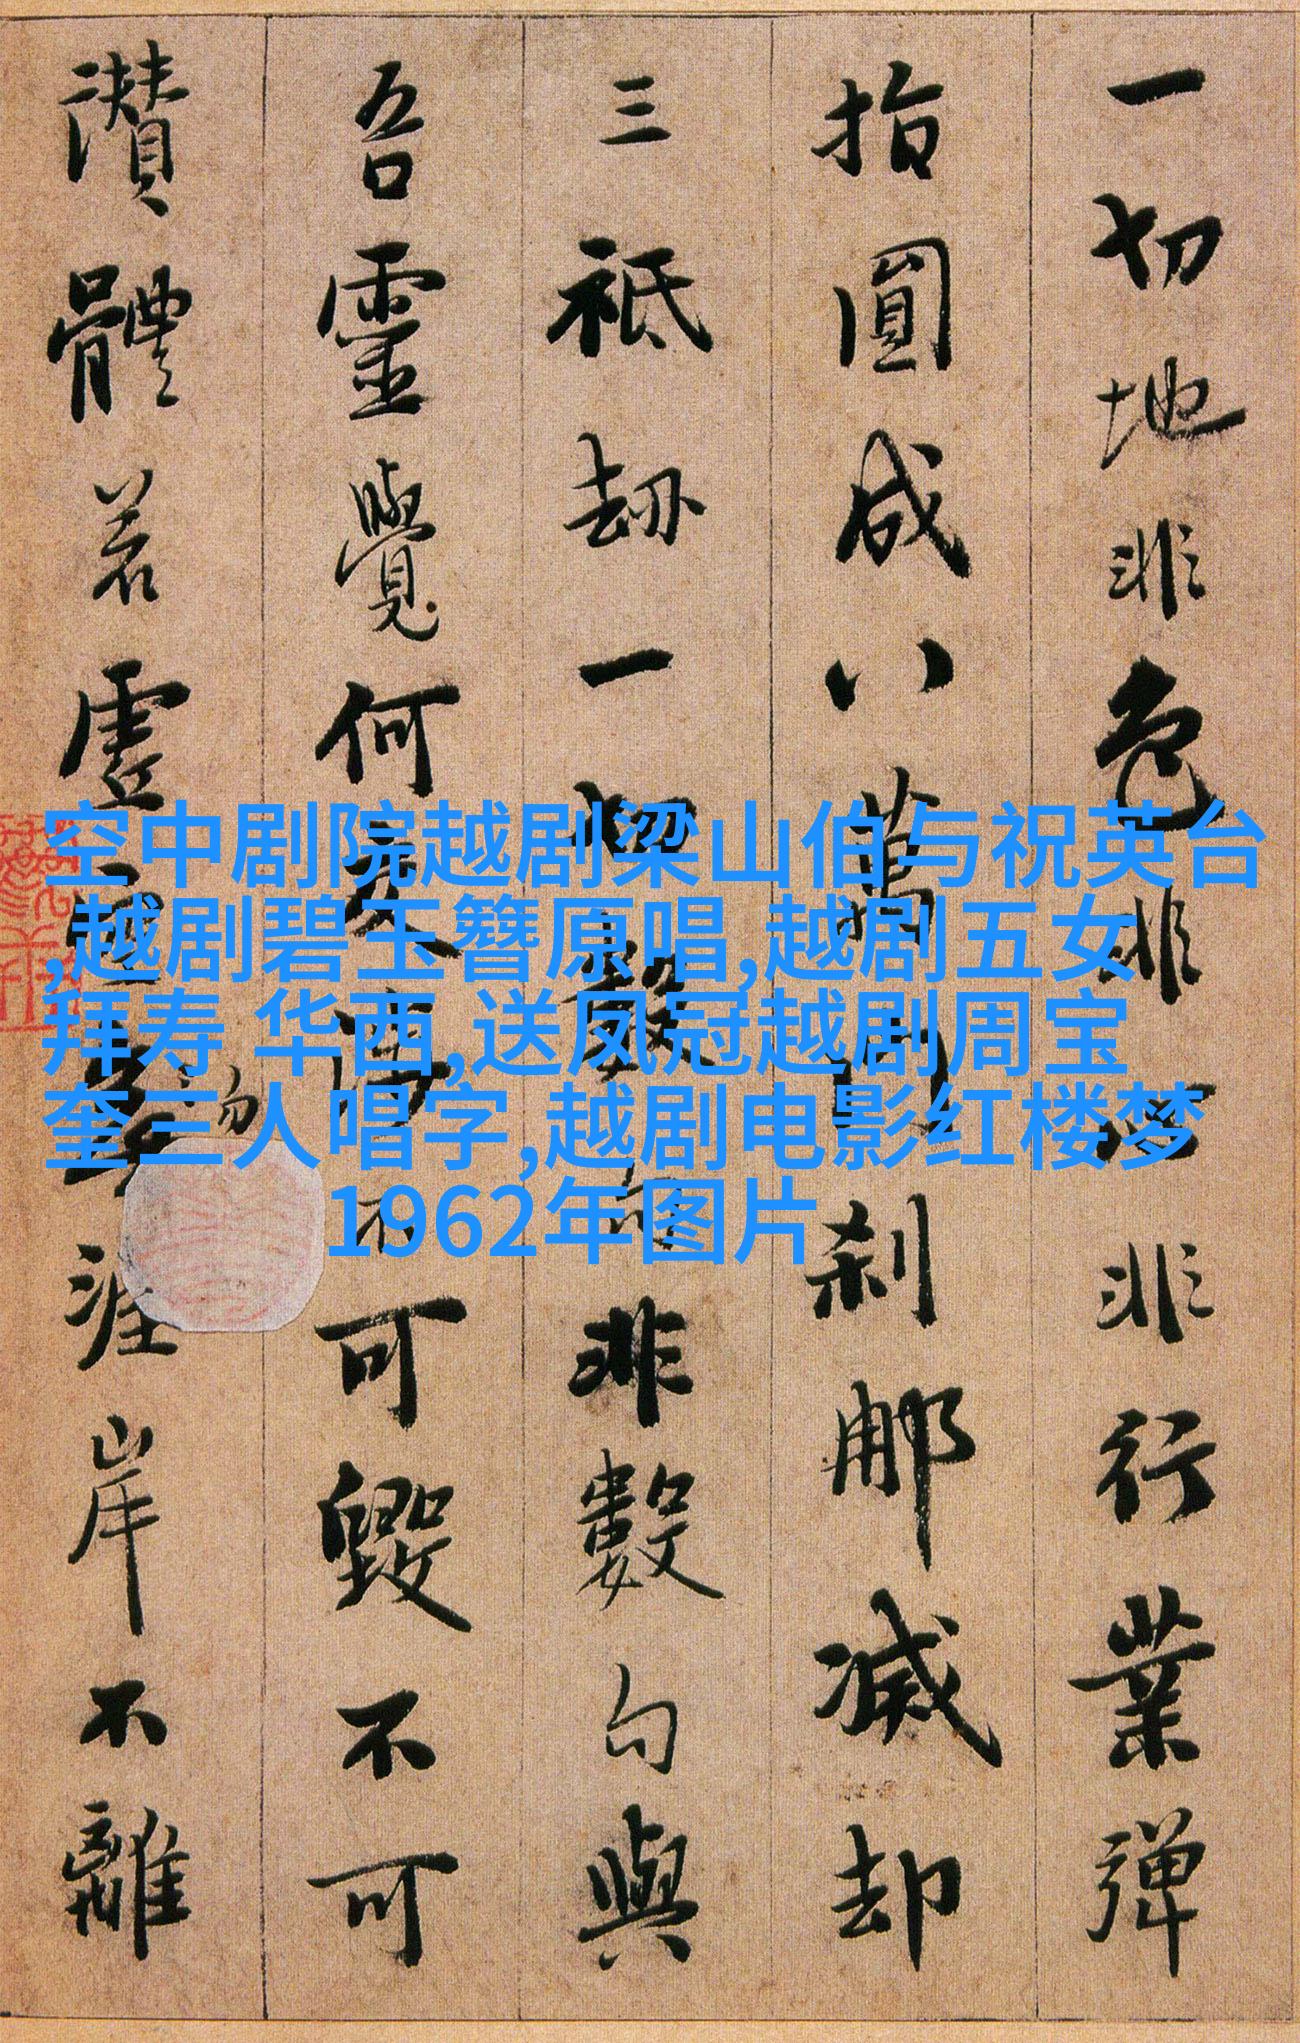 一切地非色非心非行業彈
指圓成八萬門刹那滅却
三祇劫一切數句非數句與
吾靈覺何交涉不可毀不可
讚體若虛空勿涯岸不離
空中剧院越剧梁山伯与祝英台
,越剧碧玉簪原唱,越剧五女
拜寿 华西,送凤冠越剧周宝
奎三人唱字,越剧电影红楼梦
1962年图片